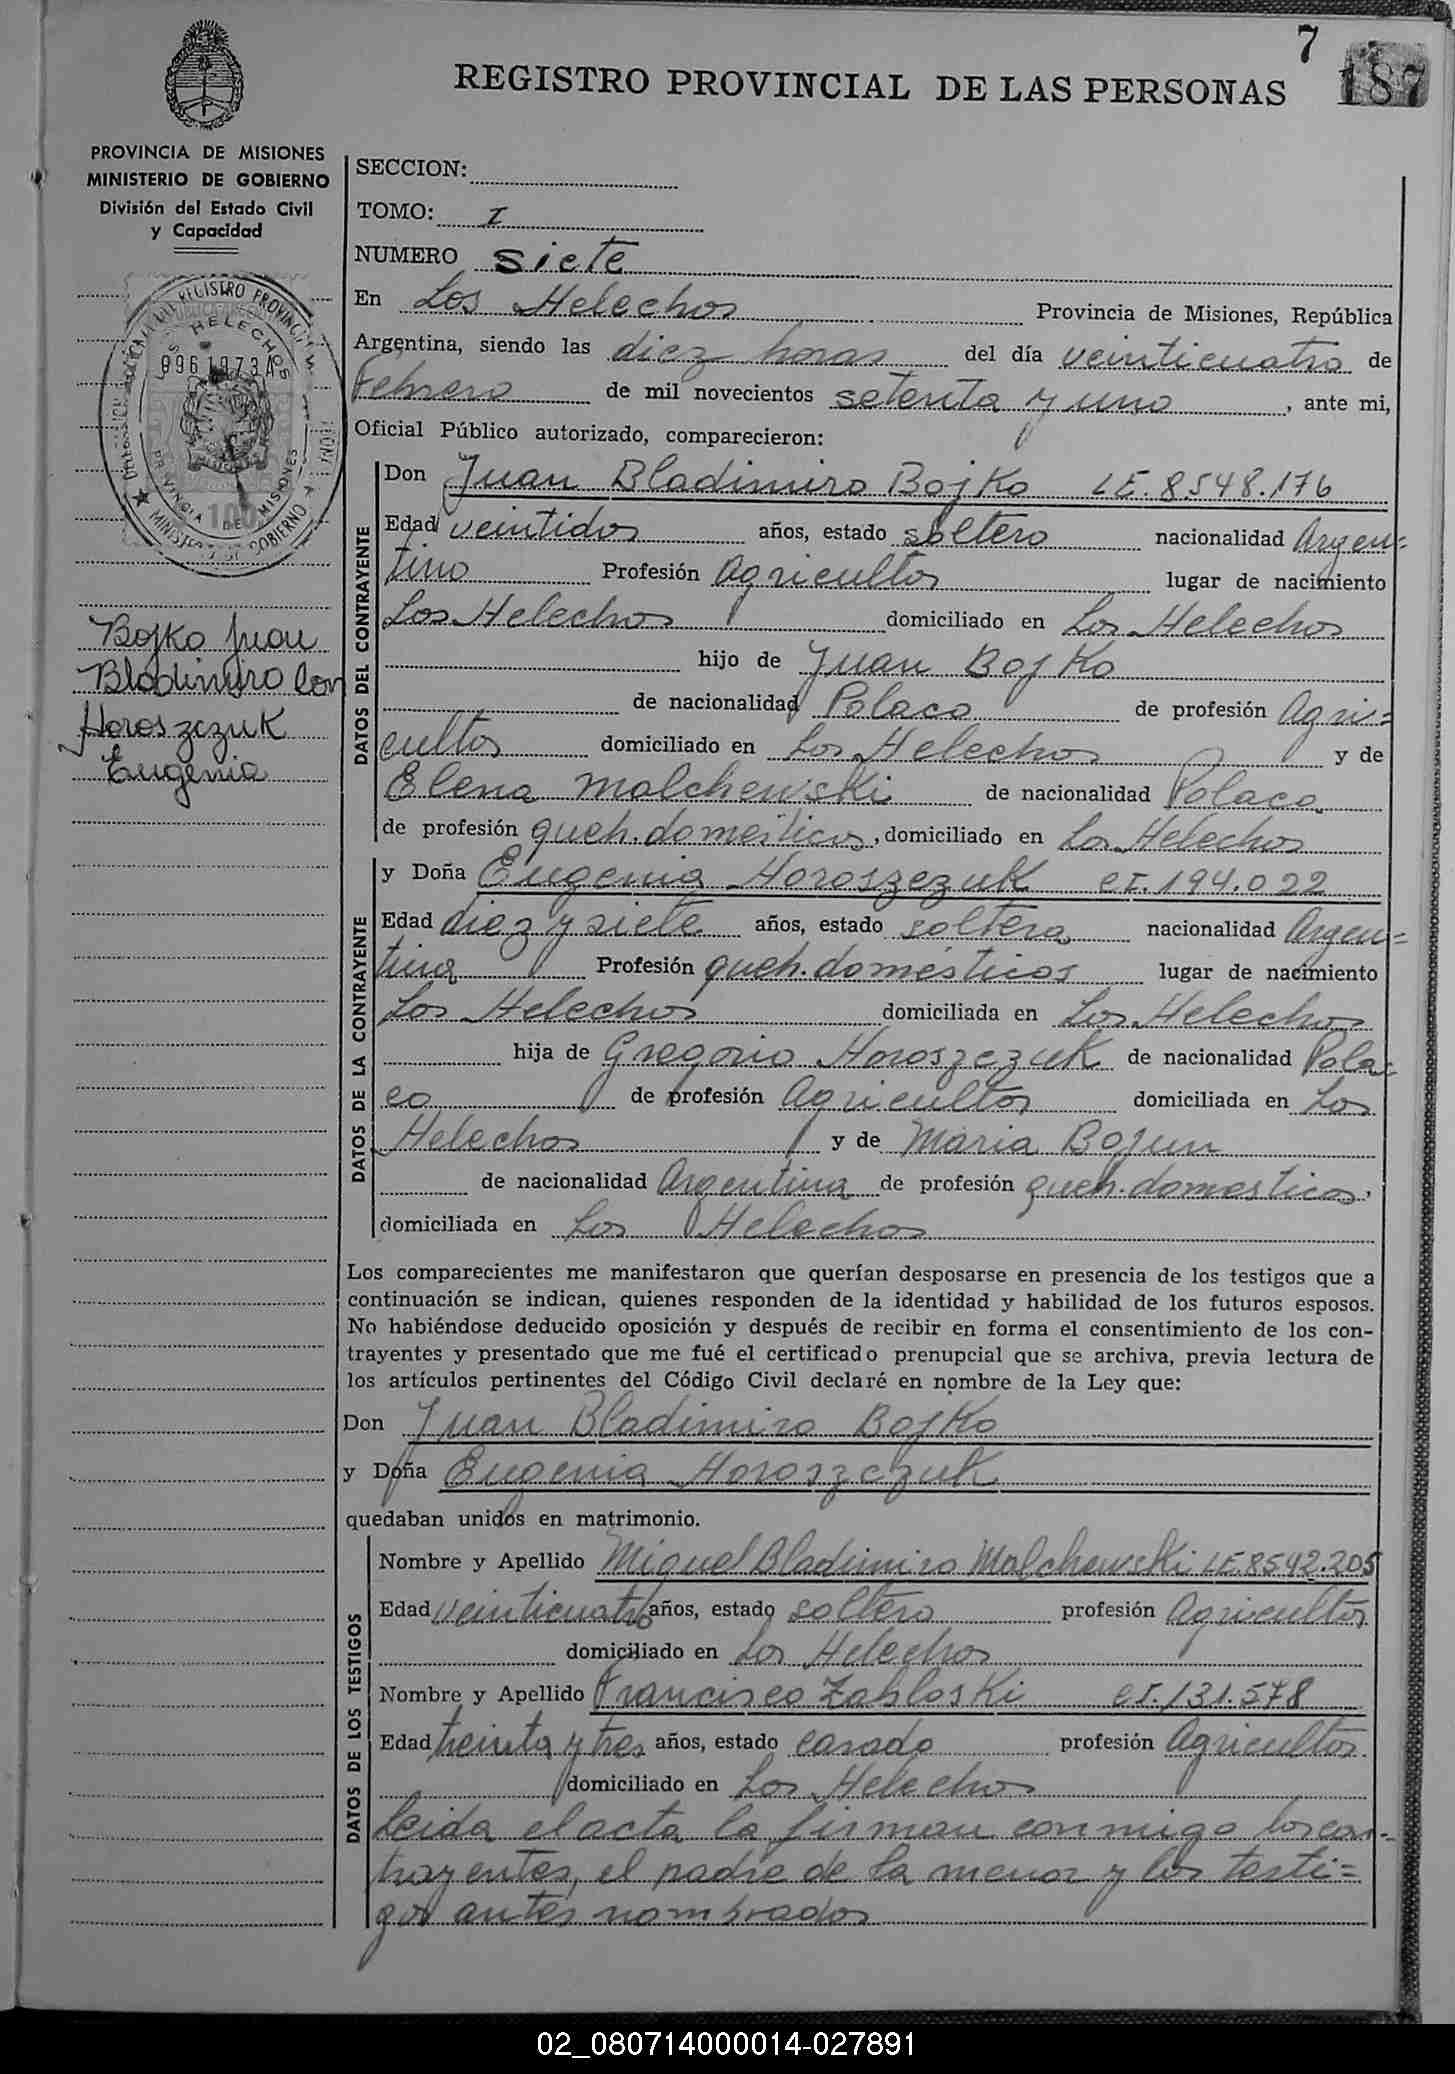 7
187
REGISTRO PROVINCIAL DE LAS PERSONAS
PROVINCIA DE MISIONES
MINISTERIO DE GOBIERNO
División del Estado Civil
y Capacidad
REGISTRO PROVINCIAL
LOS HELECHOS
0961973A
PROVINCIA DE MISIONES
MINISTERIO DE GOBIERNO
100
Bojko Juan
Bladimiro con
Horoszczuk
Eugenia
SECCION:
TOMO: I
NUMERO siete
En Los Helechos Provincia de Misiones, República
Argentina, siendo las diez horas del día veinticuatro de
Febrero de mil novecientos setenta y uno, ante mi,
Oficial Público autorizado, comparecieron:
DATOS DEL CONTRAYENTE
Don Juan Bladimiro Bojko LE. 8548.176
Edad veintidos años, estado soltero nacionalidad Argen=
tino Profesión Agricultor lugar de nacimiento
Los Helechos domiciliado en Los Helechos
hijo de Juan Bojko
de nacionalidad Polaco de profesión Agri=
cultor domiciliado en Los Helechos y de
Elena Malchewski de nacionalidad Polaca
de profesión queh. domésticos, domiciliado en Los Helechos
DATOS DE LA CONTRAYENTE
y Doña Eugenia Horoszczuk CI. 194.022
Edad diez y siete años, estado soltera nacionalidad Argen=
tina Profesión queh. domésticos lugar de nacimiento
Los Helechos domiciliada en Los Helechos
hija de Gregorio Horoszczuk de nacionalidad Pola=
co de profesión Agricultor domiciliada en Los
Helechos y de Maria Bojun
de nacionalidad Argentina de profesión queh. domesticos,
domiciliada en Los Helechos
Los comparecientes me manifestaron que querían desposarse en presencia de los testigos que a
continuación se indican, quienes responden de la identidad y habilidad de los futuros esposos.
No habiéndose deducido oposición y después de recibir en forma el consentimiento de los con-
trayentes y presentado que me fué el certificado prenupcial que se archiva, previa lectura de
los artículos pertinentes del Código Civil declaré en nombre de la Ley que:
Don Juan Bladimiro Bojko
y Doña Eugenia Horoszczuk
quedaban unidos en matrimonio.
DATOS DE LOS TESTIGOS
Nombre y Apellido Miguel Bladimiro Malchewski LE. 8542.205
Edad veinticuatro años, estado soltero profesión Agricultor
domiciliado en Los Helechos
Nombre y Apellido Francisco Zabloski CI. 131.578
Edad treinta y tres años, estado casado profesión Agricultor
domiciliado en Los Helechos
Leida el acta la firman conmigo los con-
trayentes, el padre de la menor y los testi=
gos antes nombrados
02_080714000014-027891